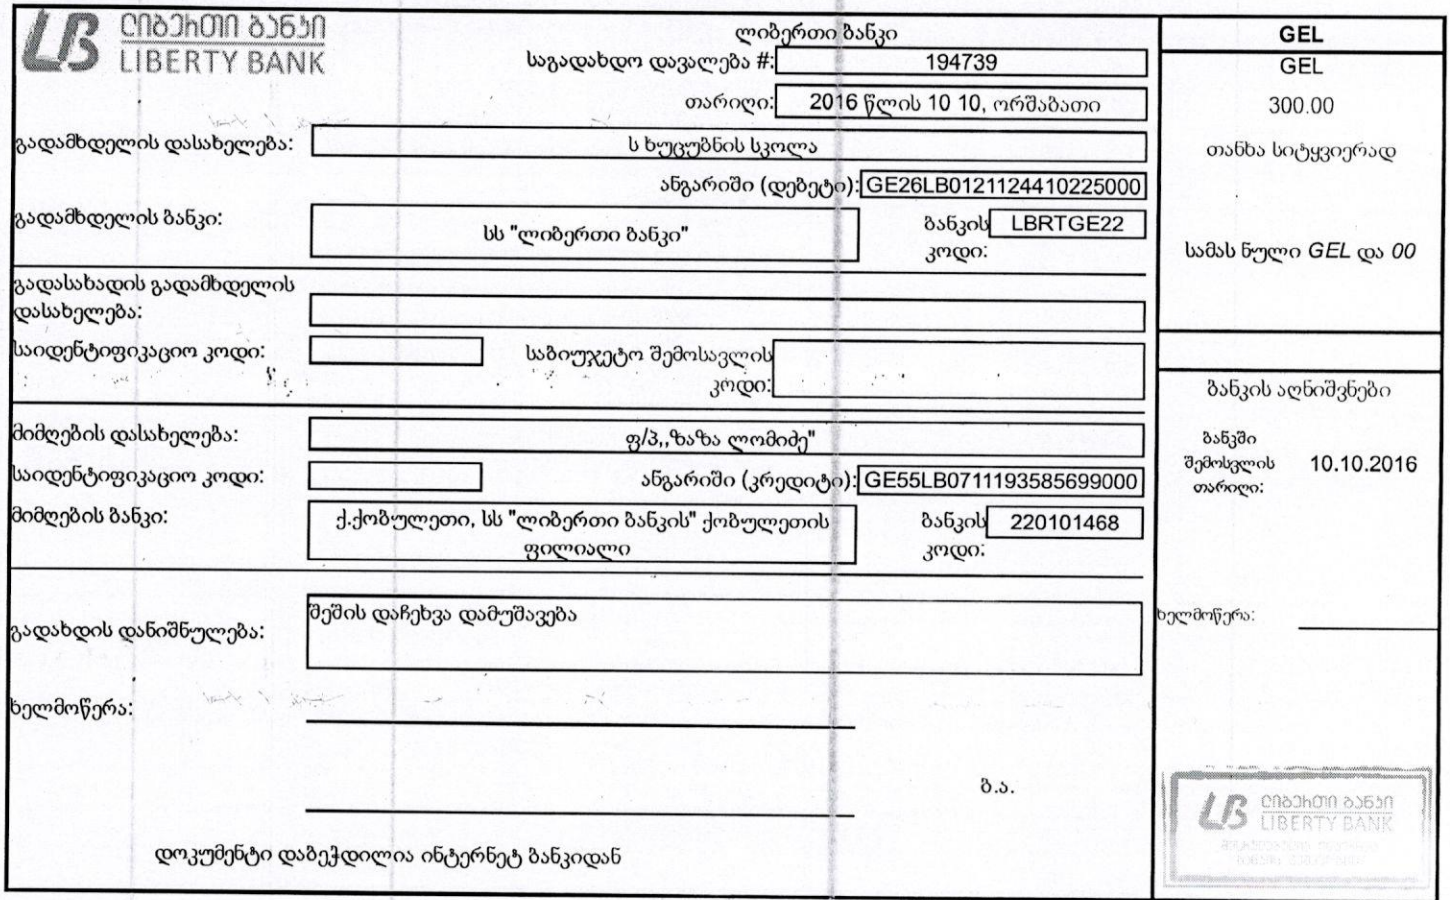 ლიბერთი ბანკი
LIBERTY BANK
ლიბერთი ბანკი
საგადახდო დავალება #: 194739
თარიღი: 2016 წლის 10 10, ორშაბათი
გადამხდელის დასახელება: ს ხუცუბნის სკოლა
ანგარიში (დებეტი): GE26LB0121124410225000
გადამხდელის ბანკი: სს "ლიბერთი ბანკი" ბანკის კოდი: LBRTGE22
გადასახადის გადამხდელის
დასახელება:
საიდენტიფიკაციო კოდი: საბიუჯეტო შემოსავლის
კოდი:
მიმღების დასახელება: ფ/პ,,ზაზა ლომიძე"
საიდენტიფიკაციო კოდი: ანგარიში (კრედიტი): GE55LB0711193585699000
მიმღების ბანკი: ქ.ქობულეთი, სს "ლიბერთი ბანკის" ქობულეთის
ფილიალი
ბანკის კოდი: 220101468
გადახდის დანიშნულება: შეშის დაჩეხვა დამუშავება
ხელმოწერა:
ბ.ა.
დოკუმენტი დაბეჭდილია ინტერნეტ ბანკიდან
GEL
GEL
300.00
თანხა სიტყვიერად
სამას ნული GEL და 00
ბანკის აღნიშვნები
ბანკში
შემოსვლის 10.10.2016
თარიღი:
ხელმოწერა:
ლიბერთი ბანკი
LIBERTY BANK